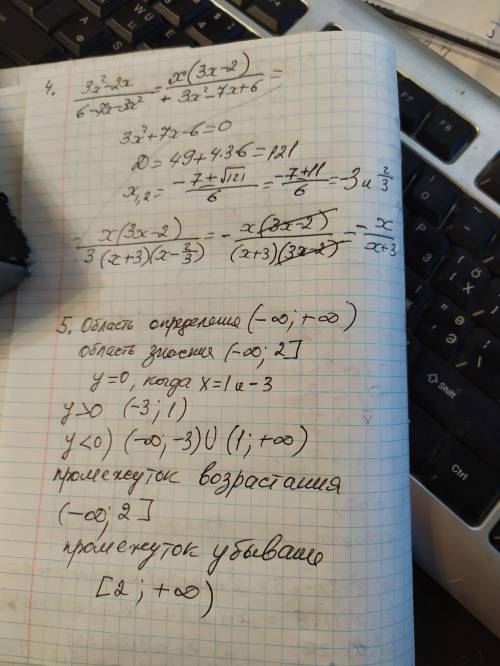 4. (3x²-2x)/(6-7x-3x²) = x(3x-2)/(+3x²-7x+6) =
3x²+7x-6=0
D=49+4·3·6=121
x₁,₂ = (-7±√121)/6 = (-7±11)/6 = -3 и 2/3
- x(3x-2)/(3(x+3)(x-2/3)) = - x(3x-2)/((x+3)(3x-2)) = - x/(x+3)
5. Область определения (-∞; +∞)
область значения (-∞; 2]
y=0, когда x=1 и -3
y>0 (-3; 1)
y<0) (-∞; -3)∪(1; +∞)
промежуток возрастания
(-∞; 2]
промежуток убывание
[2; +∞)
Shift
Ctrl